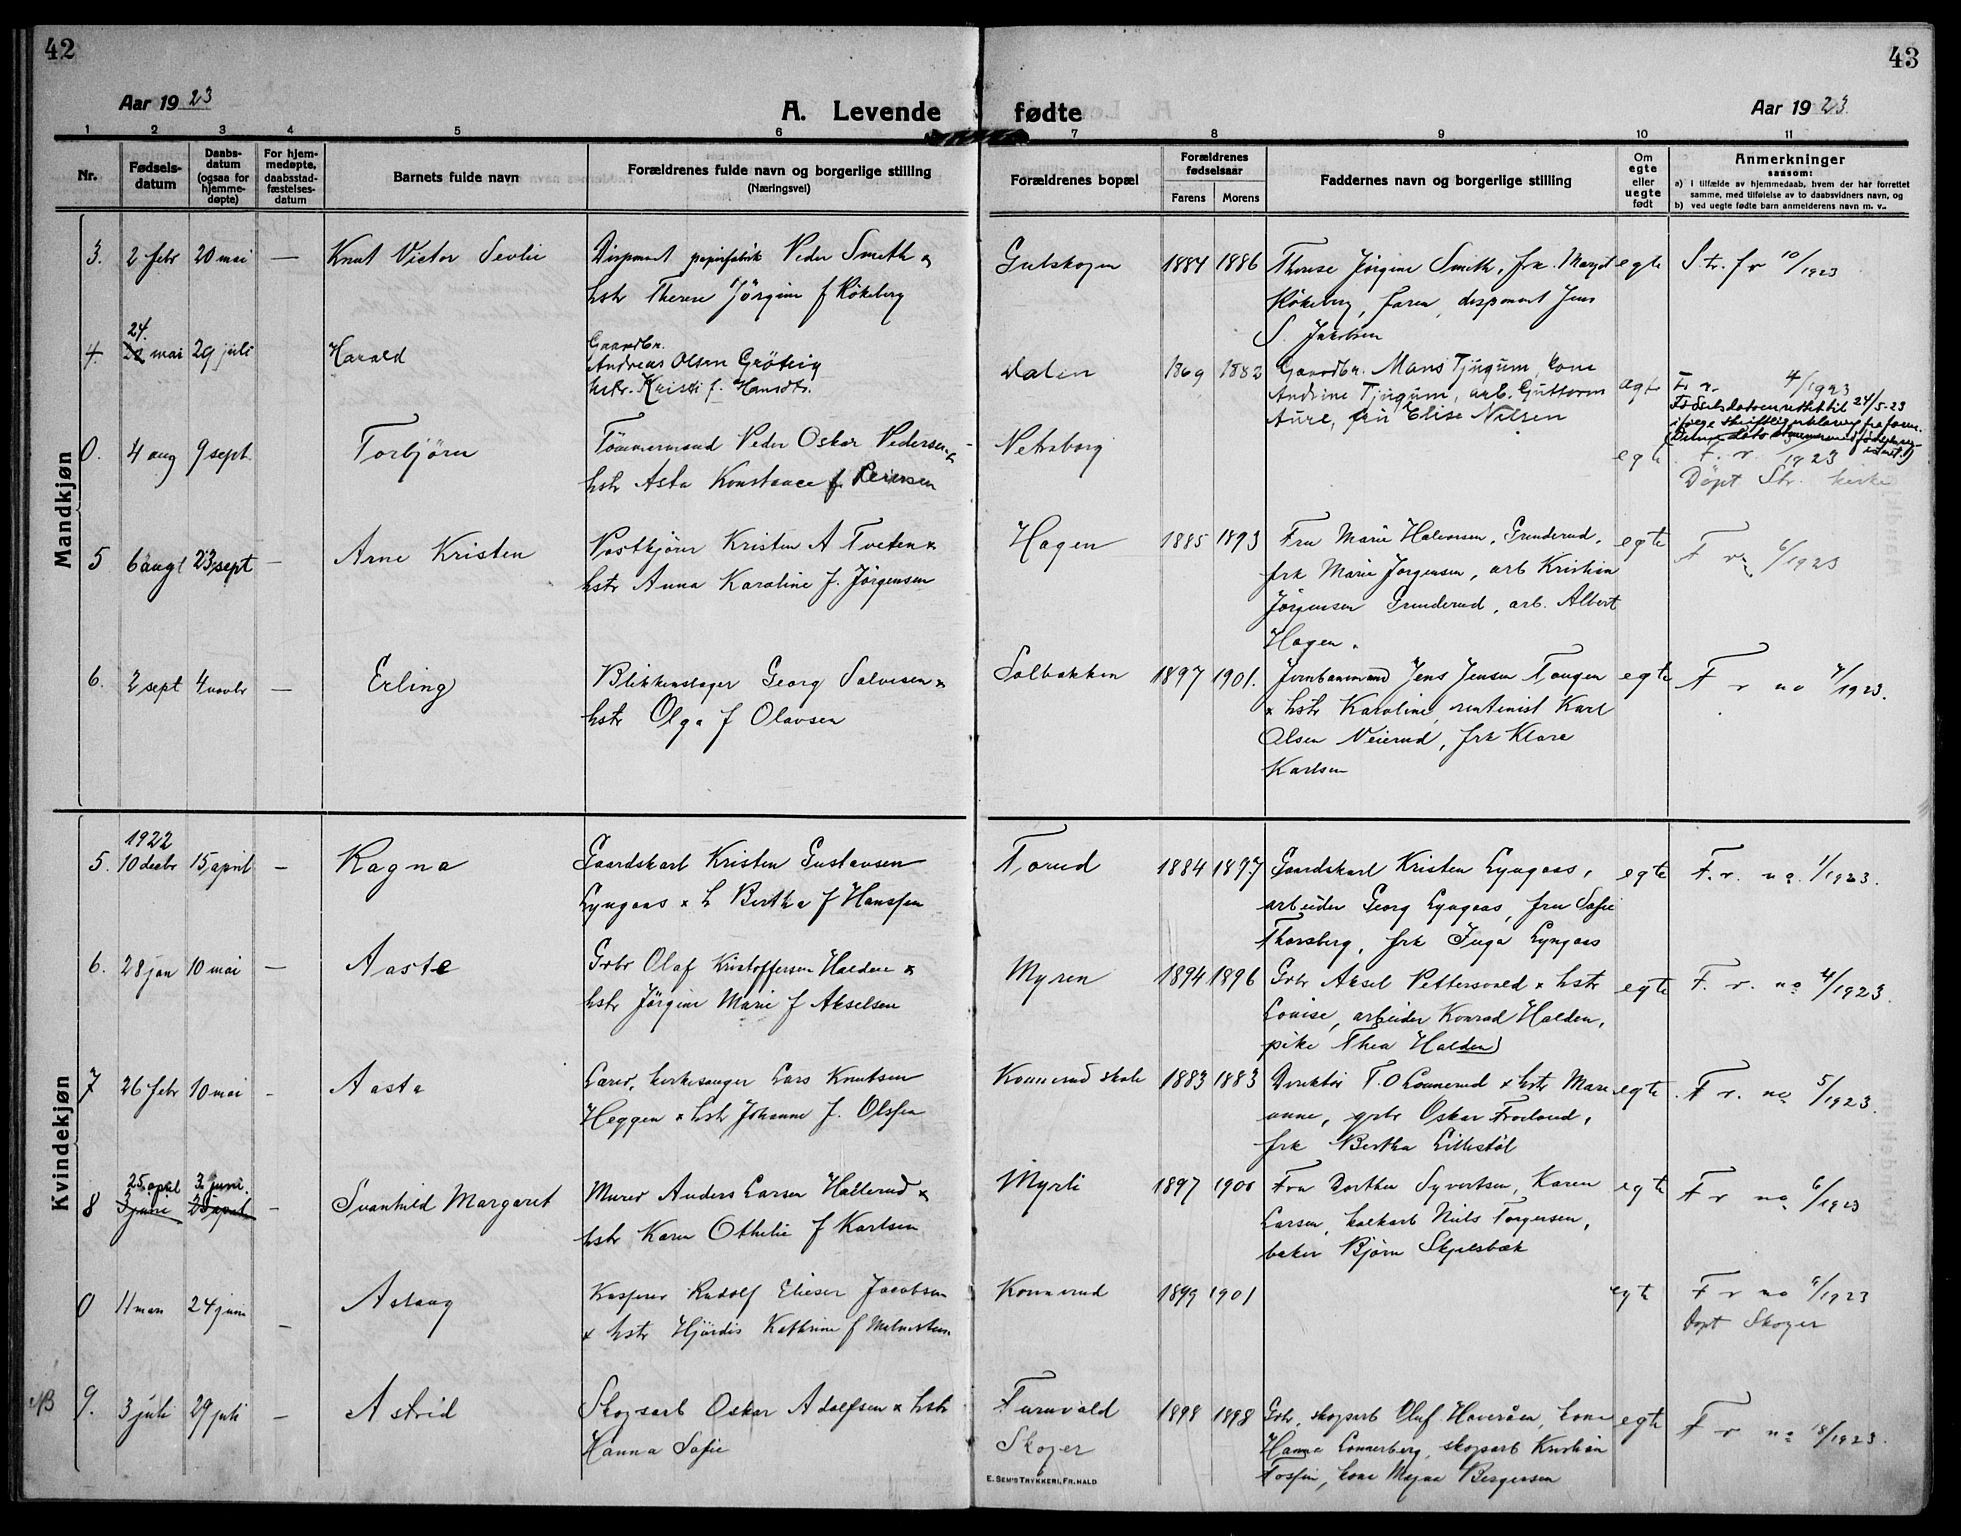 42
43
Aar 1923
A. Levende fødte
Aar 1923
1 2 3 4 5 6 7 8 9 10 11
Nr.
Fødsels-
datum
Daabs-
datum
(ogsaa for
hjemme-
døpte)
For hjem-
medøpte,
daabsstad-
fæstelses-
datum
Barnets fulde navn
Forældrenes fulde navn og borgerlige stilling
(Næringsvei)
Forældrenes bopæl
Forældrenes
fødselsaar
Farens Morens
Faddernes navn og borgerlige stilling
Om
egte
eller
uegte
født
Anmerkninger
saasom:
a) i tilfælde av hjemmedaab, hvem der har forrettet
samme, med tilføielse av to daabsvidners navn, og
b) ved uegte fødte barn anmelderens navn m. v..
Mandkjøn
3. 2 febr 20 mai — Knut Victor Sevlie
Disponent papirfabrik Peder Smith og
hstr Therese Jörgine f Rökeberg
Gulskogen 1884 1886
Therese Jørgine Smith, frk. Margit
Rökeberg, faren, disponent Jens
S. Jakobsen
egte
S. tr. f v 10/1923
24.
4. 22 mai 29 juli Harald
Gaardbr.
Andreas Olsen Gröting
hstr. Kristi f. Hansdtr.
Dalen 1869 1882
Gaardbr. Mans Tjugum, kone
Andrine Tjugum, arb. Guttorm
Aure, fru Elise Nilsen
egte
F. r. 4/1923
Fødselsdatoen rettet til 24/5-23
ifølge skriftlig erklæring fra faren.
0. 4 aug 9 sept. Torbjörn
Tömmermand Peder Oskar Pedersen &
hstr Asta Konstance f. Reiersen
Netaborg
egte
F. r. 1923
Döpt Str. kirke
5 6 augt 23 sept — Arne Kristen
Postkjörer Kristen A Tveten &
hstr Anna Karoline f. Jörgensen
Hagen 1885 1893
Fru Marie Halvorsen, Grunderud,
frk Marie Jorgensen, arb Kristian
Jörgensen Grunderud, arb. Albert
Hagen.
egte
F r. 6/1923
6. 2 sept 4 novbr — Erling
Blikkenslager Georg Salvesen &
hstr Olga f Olavsen
Solbakken 1897 1901.
Jernbanemand Jens Jensen Tangen
& hstr Karoline, rentenist Karl
Olsen Veierud, frk Klara
Karlsen
egte
F r no 7/1923.
Kvindekjøn
1922
5. 10 decbr 15 april — Ragna
Gaardskarl Kristen Gustavsen
Lyngaas & h Bertha f Hanssen
Torud 1884 1897
Gaardskarl Kristen Lyngaas,
arbeider Georg Lyngaas, fru Sofie
Thorsberg, frk Inga Lyngaas
egte
F. r. no. 1/1923.
6. 28 jan 10 mai — Aaste
Grbr Olaf Kristoffersen Halden &
hstr Jörgine Marie f Akselsen
Myren 1894 1896
Grbr Aksel Pettersvold & hstr
Lovise, arbeider Konrad Halden,
pike Thea Halden
egte
F. r. no 4/1923.
7 26 febr 10 mai — Aasta
Lærer, kirkesanger Lars Knutsen
Heggen & hstr Johanne f. Olssen
Konnerud skole 1883 1883
Direktör T. O Connerud & hstr Mari
anne, grbr Oskar Froland,
frk Bertha Lillestöl
egte
F r. no 5/1923.
25 april 3. juni.
8 3 juni 25 april — Svanhild Margaret
Murer Anders Larsen Hallerud &
hstr Karen Othilie f Karlsen
Myrli 1897 1900
Fru Dorthea Syvertsen, Karen
Larsen, kalkarb Niels Torgersen,
baker Björn Skjelsbæk
egte
F r no 6/1923
0 11 mars 24 juni — Aslaug
Kasserer Rudolf Elieser Jacobsen
& hstr Hjördis Kathrine f
Konnerud 1899 1901
egte
F r no 9/1923
Döpt Skoger
NB 9. 3 juli 29 juli — Astrid
Skogsarb Oskar Adolfsen & hstr
Hanna Sofie
Furuvald
Skoger
1898 1898
Grbr, skogsarb Oluf Haveråen, kone
Hanna Connerberg, skogsarb Kristian
Tossen, kone Majna Bergersen
egte
F r no 18/1923.
E. SEM'S TRYKKERI, FR.HALD